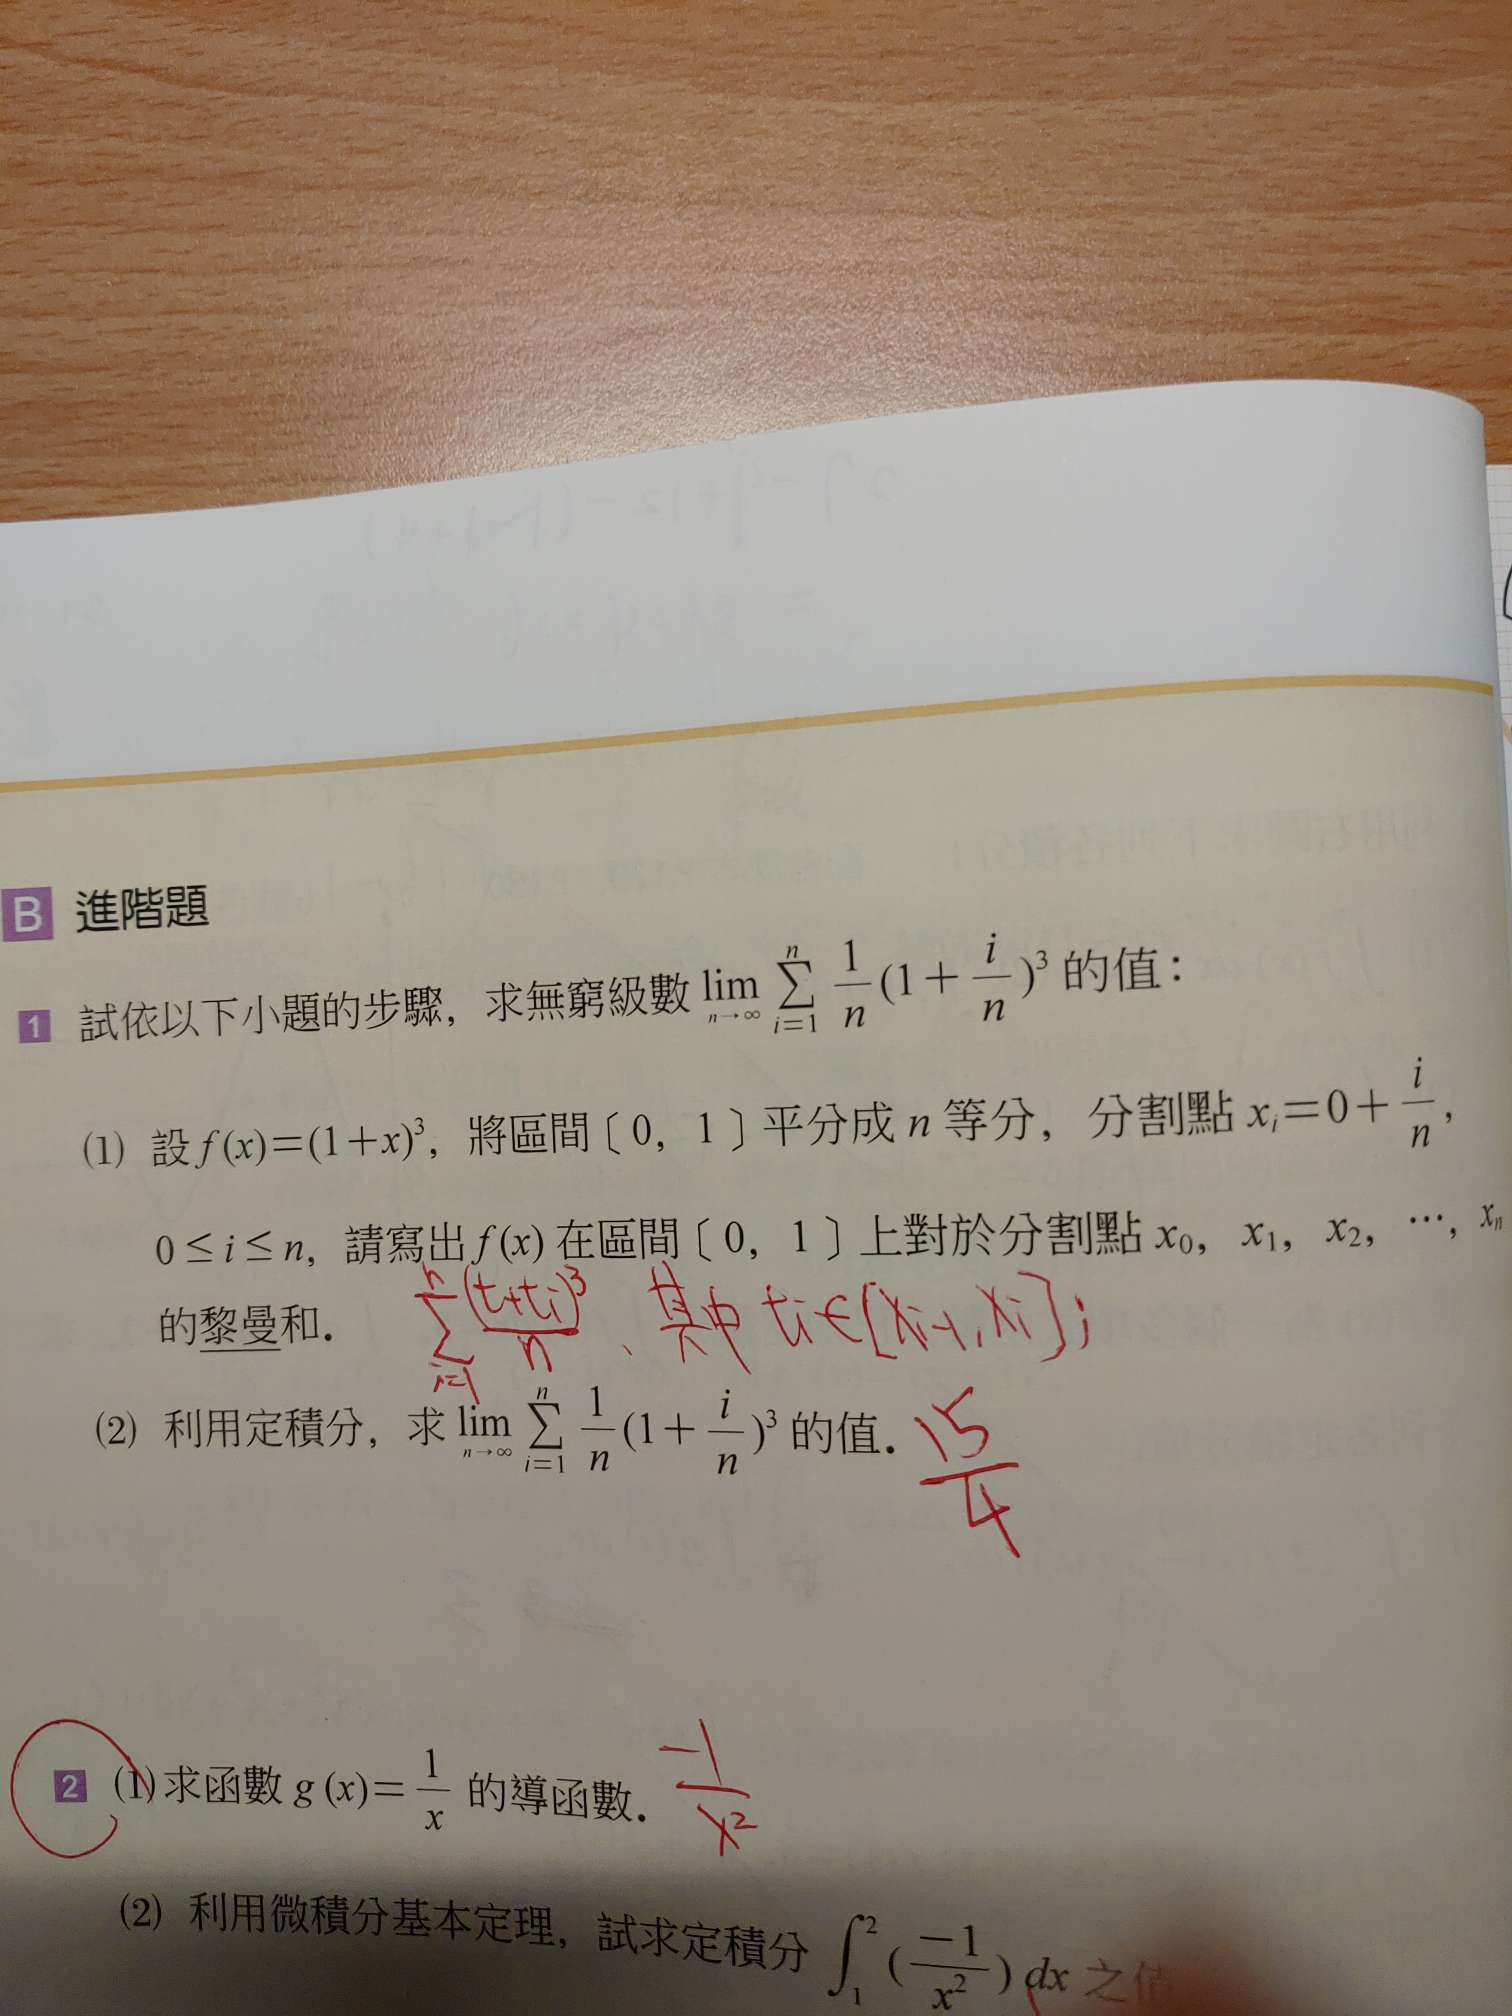 B 進階題
1 試依以下小題的步驟，求無窮級數 lim n→∞ Σ i=1 n 1/n (1+ i/n)³ 的值：
(1) 設 f(x)=(1+x)³，將區間〔0，1〕平分成 n 等分，分割點 xᵢ=0+ i/n，
0≤i≤n，請寫出 f(x) 在區間〔0，1〕上對於分割點 x₀，x₁，x₂，⋯，xₙ
的黎曼和． Σ i=1 n (t+ti)³/n 、其中 ti∈[xi-1, xi];
(2) 利用定積分，求 lim n→∞ Σ i=1 n 1/n (1+ i/n)³ 的值． 15/4
2 (1) 求函數 g(x)= 1/x 的導函數． -1/x²
(2) 利用微積分基本定理，試求定積分 ∫₁² (-1/x²) dx 之值